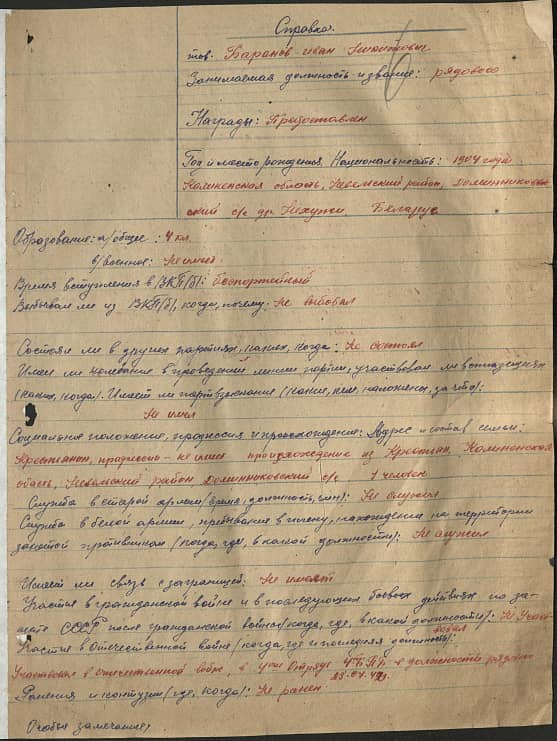 Справка.
тов. Баранов Иван Никитович
Занимаемая должность и звание: рядового
Награды: Представлен
Год и место рождения Национальность: 1904 года
Калиненская область, Невельский район,
ский с/с др. Беларус
Образование: а/общее: 4 кл.
б/военное: Не имеет
Время вступления в ВКП/б/: беспартейный
Выбывал ли из ВКП/б/, когда, почему: Не выбовал
Состоял ли в других партиях, каких, когда: Не состоял
Имел ли колебания в проведении линии партии, участвовал ли в оппозициях
/каких, когда/. Имеет ли партвзыскания /какие, кем, наложены, за что/:
Не имел
Социальное положение, профессия и происхождение: Адрес и состав семьи:
Крестьянин, профессии - не имеет происхождение из Крестьян, Калиненская
область, Невельский район Доминиковский с/с 1 человек
Служба в старой армии /время, должность, чин/: Не служил
Служба в белой армии, пребывание в плену, нахождение на территории
занятой противником /когда, где, в какой должности/: Не служил
Имеет ли связь с заграницей: Не имеет
Участие в гражданской войне и в последующих боевых действиях по за-
щите СССР после гражданской войны /когда, где, в какой должности/: Не Участ-
вовал
Участие в Отечественной войне /когда, где и последняя должность/:
Участвовал в отечественной войне, в отряде в должности рядового
Ранения и контузии /где, когда/: Не ранен
Особые замечания,